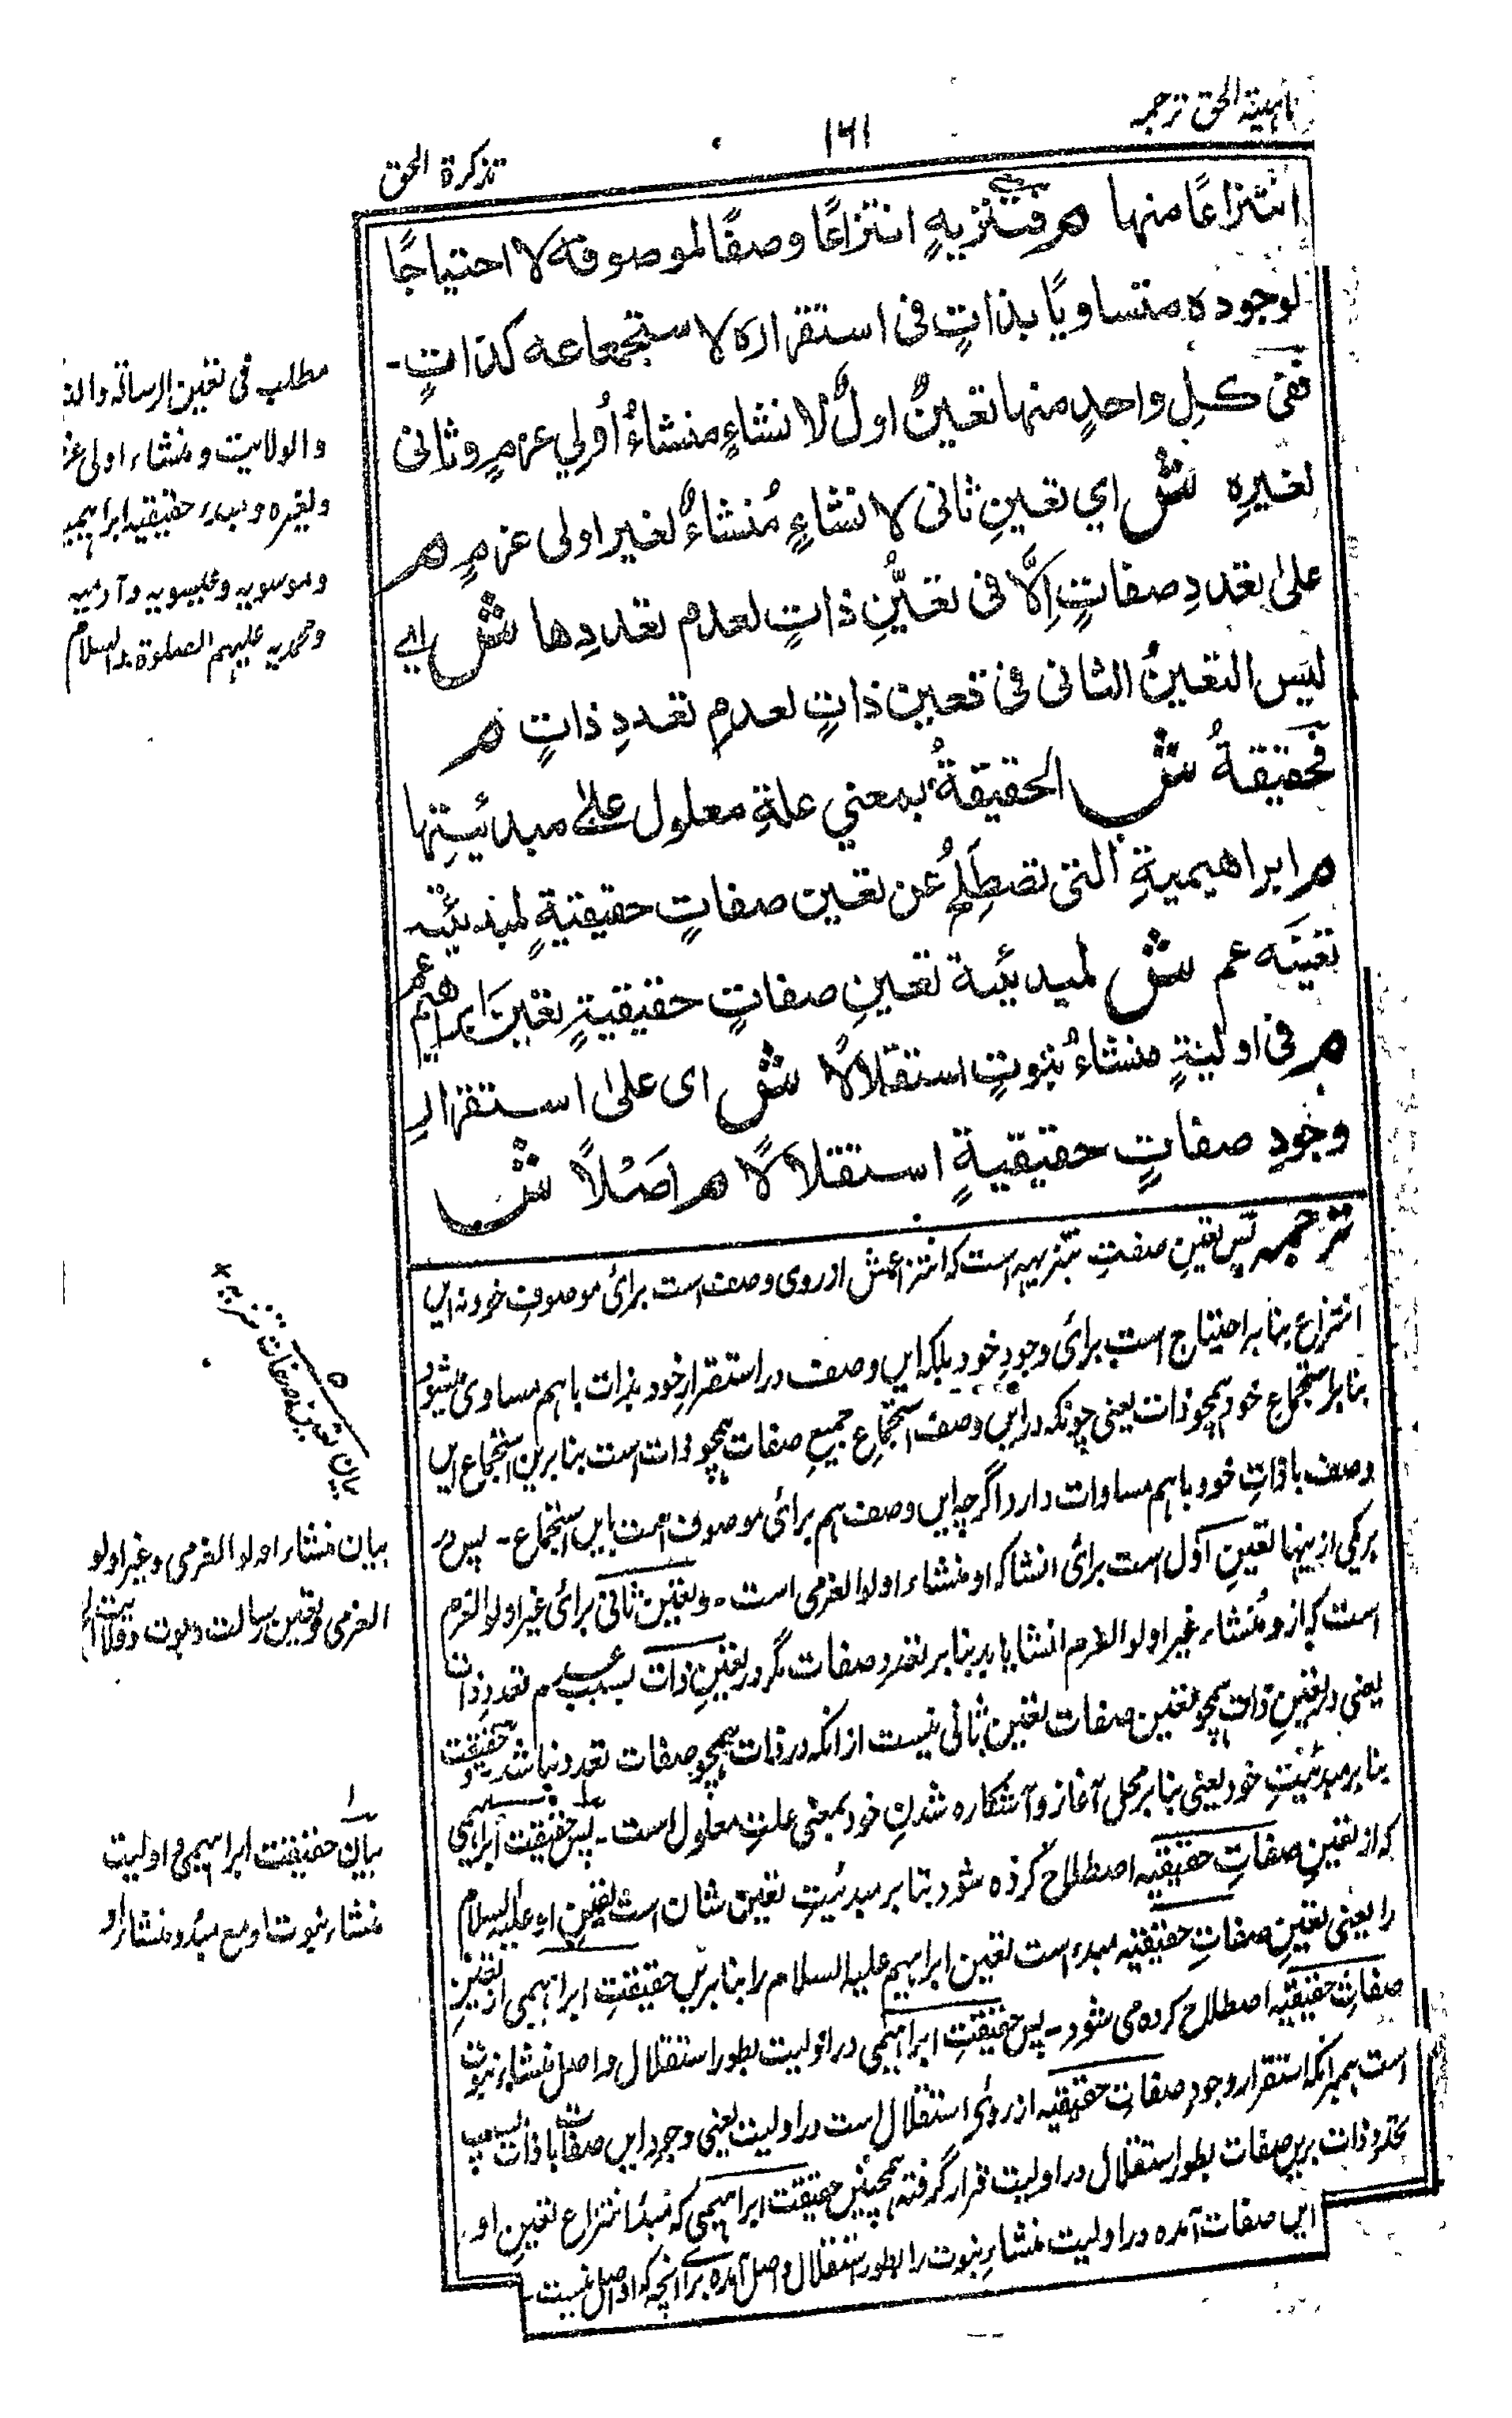 ماهیة الحق ترجمه
۱۶۱
تذکرة الحق
انتزاعًا منها هر فتنزیهٍ انتزاعًا وصفًا لموصوفه لا احتیاجًا
لوجوده متساویًا بذاتٍ فی استقراره لا ستجماعه کذاتٍ۔
ففی کلِ واحدٍ منها تعینٌ اولٌ لا نشاءٍ منشاءُ أولي عزمٍ وثانی
لغیرهِ ش اي تعینِ ثانی لا نشاءٍ مُنشاءٌ لغیر اولی عزمٍ هر
علیٰ تعددِ صفاتٍ اِلّا فی تعیُّنِ ذاتٍ لعدم تعددِها ش اي
لیسَ التعینُ الثانی فی تعین ذاتٍ لعدمِ تعددِ ذاتٍ هر
فحقیقةُ ش الحقیقةُ بمعني علةِ معلول علیٰ مبدائیتِها
هر ابراهیمیةِ التی تصطلحُ عن تعین صفاتٍ حقیقیةٍ لمبدئیته
تعینَه عم ش لمبدئیة تعینِ صفاتٍ حقیقیةٍ تعینَ ابراهیم عم
هر فی اولیةٍ منشاءُ نبوتٍ استقلالًا ش ای علیٰ استقرارِ
وجودِ صفاتٍ حقیقیةٍ استقلالًا هر اصلًا ش
ترجمه پس تعینِ صفتِ تنزیهیه است که انتزاعش از روی وصف است برائی موصوفِ خود نه این
انتزاع بنا بر احتیاج است برائی وجودِ خود بلکه این وصف در استقرارِ خود بذات باهم مساوی میشود
بنا بر استجماع خود همچو ذات یعنی چونکه در این وصف استجماعِ جمیعِ صفات همچو ذات است بنا برین استجماع این
وصف با ذاتِ خود باهم مساوات دارد اگر چه این وصف هم برائی موصوف است باین استجماع۔ پس در
هر یکی ازینها تعینِ اول است برائی انشا که او منشاء اولوالعزمی است۔ و تعین ثانی برائی غیر اولوالعزم
است که ازو مُنشاء غیر اولوالعزم انشا یابد بنا بر تعددِ صفات مگر در تعینِ ذات بسبب عدم تعددِ ذات
یعنی در تعینِ ذات همچو تعین صفات تعینِ ثانی نیست از انکه در ذات همچو صفات تعدد نباشد و حقیقت
بنا بر مبدئیتِ خود یعنی بنا بر محلِ آغاز و آشکاره شدنِ خود بمعنی علتِ معلول است۔ پس حقیقت ابراهیمی
که از تعینِ صفاتِ حقیقیه اصطلاح کرده شود بنا بر مبدئیتِ تعین شان است تعینِ او علیه السلام
را یعنی تعینِ صفاتِ حقیقیه مبدء است تعین ابراهیم علیه السلام را بنا برین حقیقتِ ابراهیمی از تعینِ
صفاتِ حقیقیه اصطلاح کرده می شود۔ پس حقیقتِ ابراهیمی در اولیت بطور استقلال و اصل منشاء نبوت
است بهر انکه استقرارِ وجودِ صفاتِ حقیقیه از روی استقلال است در اولیت یعنی وجودِ این صفات با ذات بسبب
ذات برین صفات بطور استقلال در اولیت قرار گرفته همچنین حقیقت ابراهیمی که مبدأ انتزاع تعینِ او
این صفات آمده در اولیت منشاءِ نبوت را بطور استقلال و اصل آمده برا انچه که او اصل نیست۔
مطلب فی تعین الرسالة
والولایت و منشاء اولی
ولغیره و مبدء حقیقیه ابراهیمیه
وموسویه وعیسویه وآدمیه
ومحمدیه علیهم الصلوة والسلام
بیان تعین صفات تنزیهیه
بیان منشاء اولوالعزمی وغیر اولو
العزمی و تعین رسالت ونبوت
بیان حقیقت ابراهیمی و اولیت
منشاء نبوت او مع مبدء و منشاء او